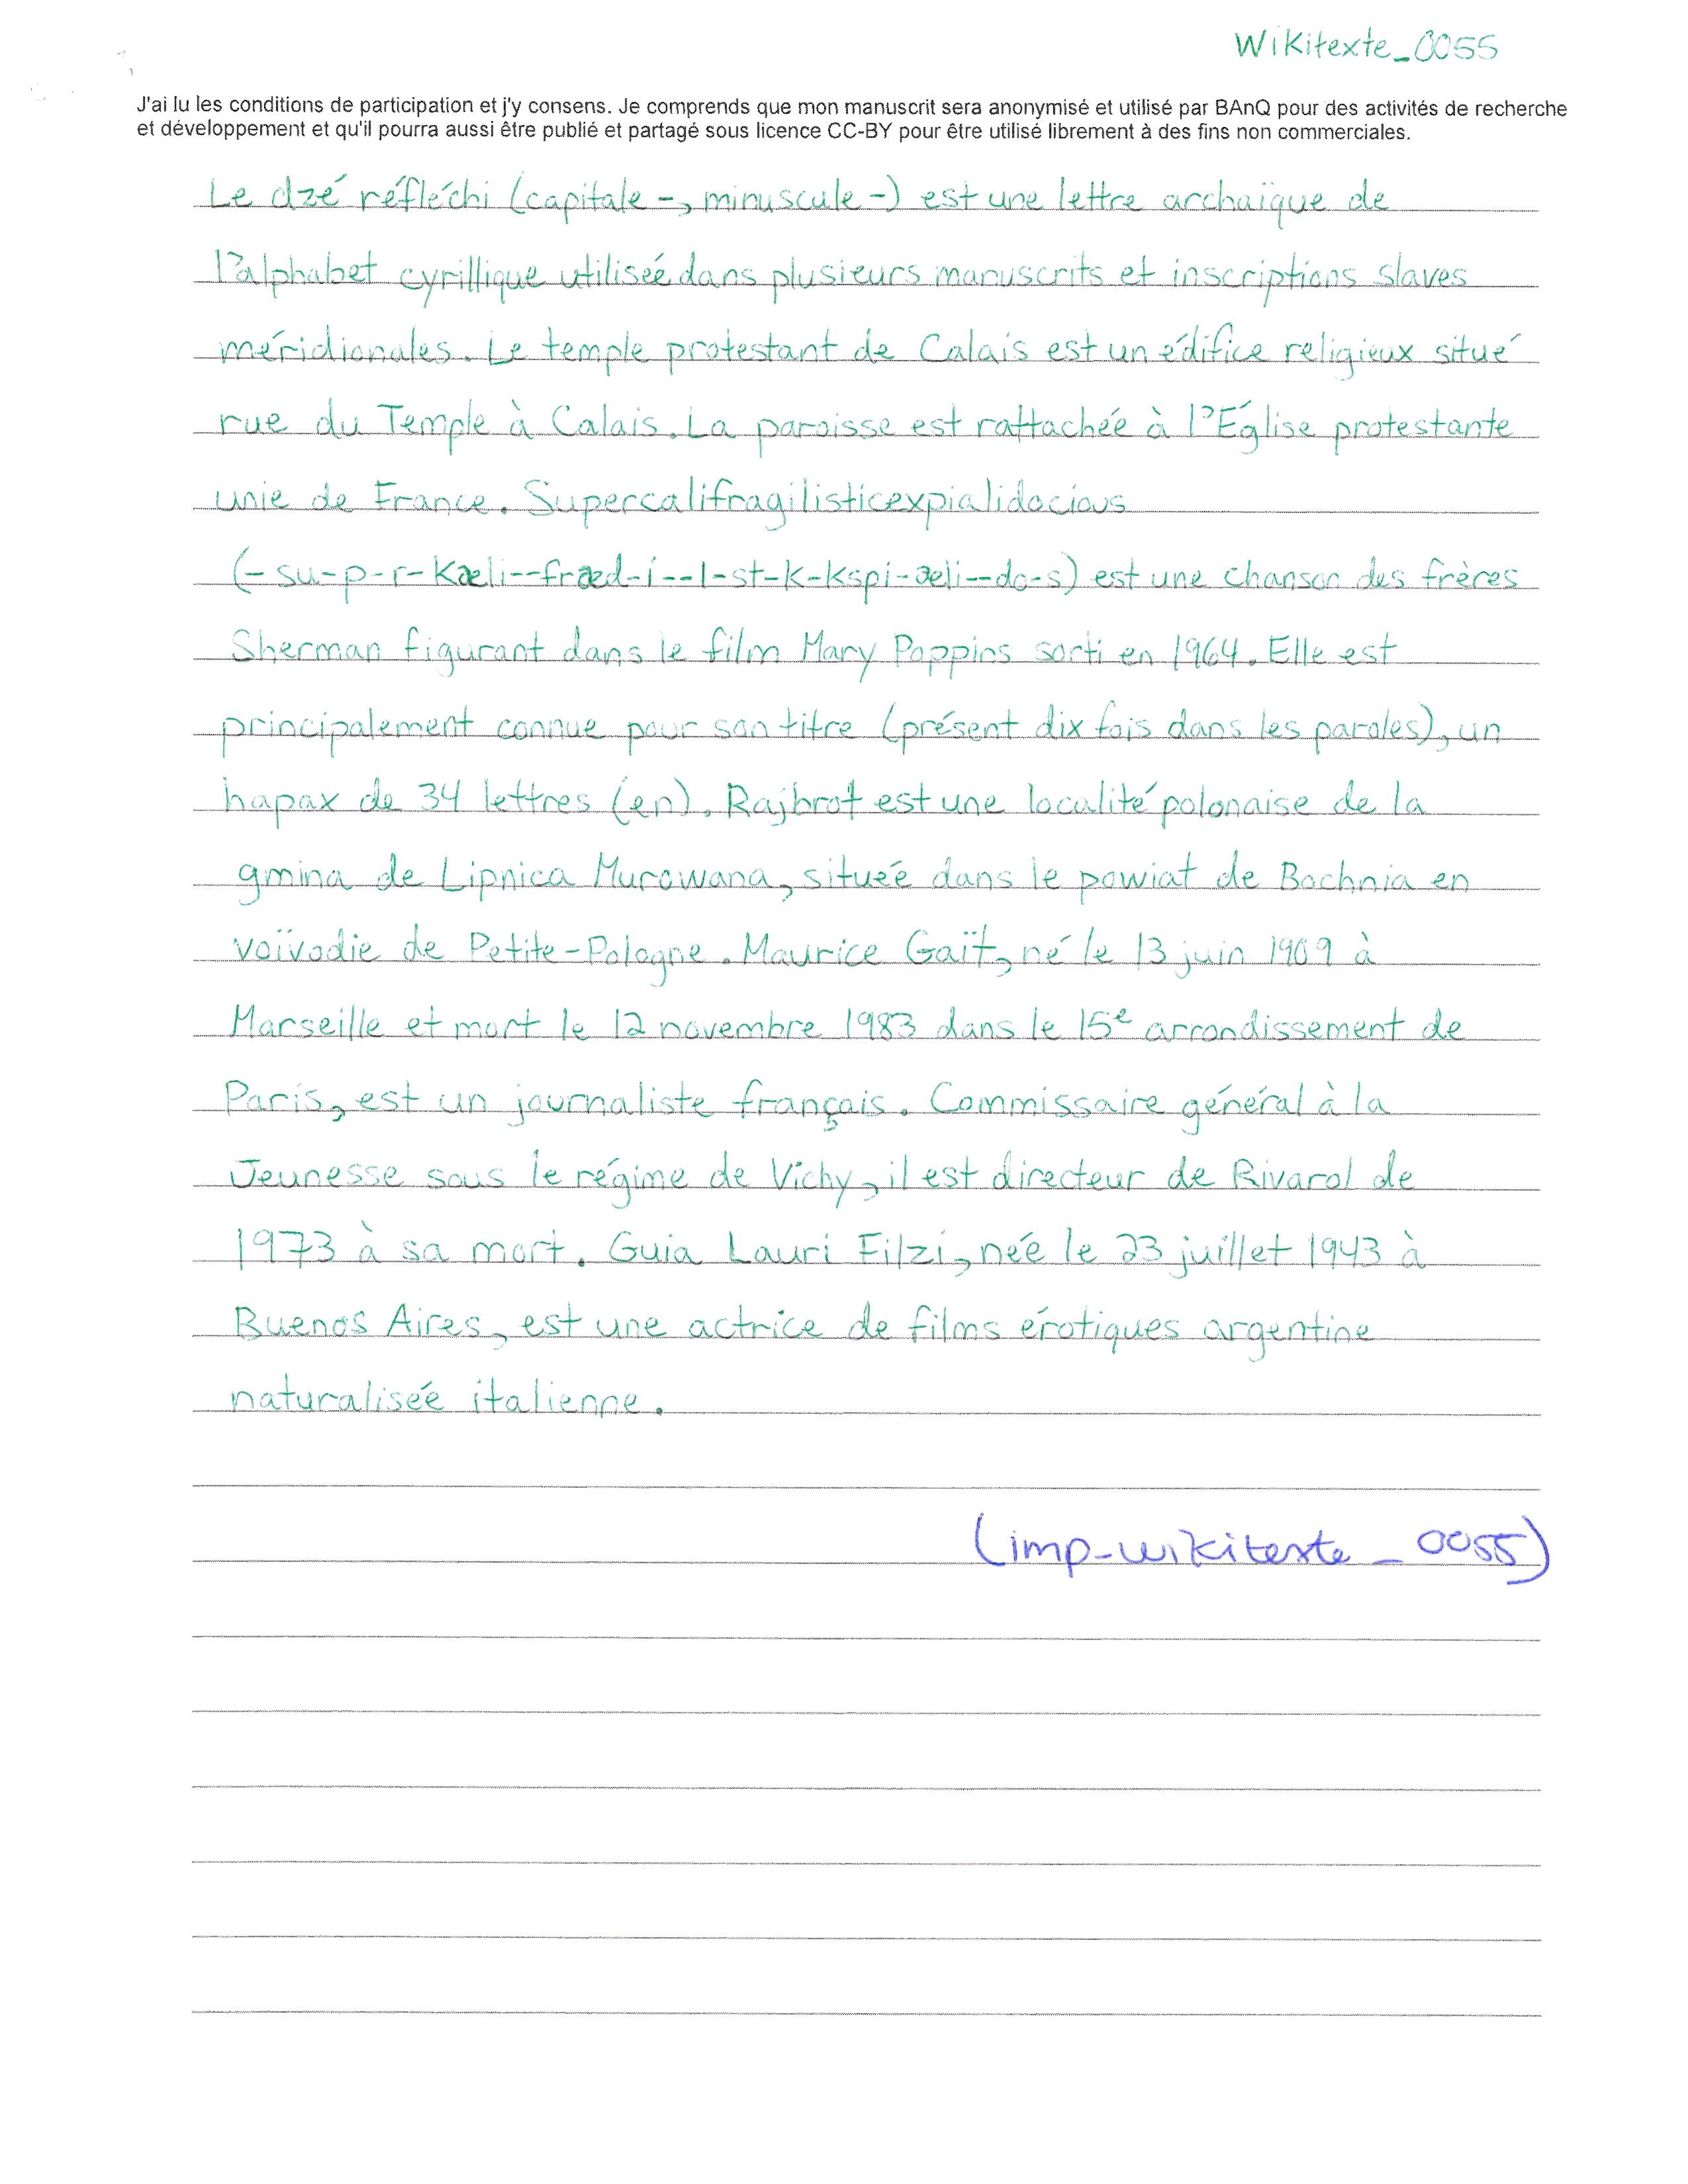 Wikitexte_0055
J'ai lu les conditions de participation et j'y consens. Je comprends que mon manuscrit sera anonymisé et utilisé par BAnQ pour des activités de recherche
et développement et qu'il pourra aussi être publié et partagé sous licence CC-BY pour être utilisé librement à des fins non commerciales.
Le dzé réfléchi (capitale -, minuscule -) est une lettre archaïque de
l'alphabet cyrillique utilisée dans plusieurs manuscrits et inscriptions slaves
méridionales. Le temple protestant de Calais est un édifice religieux situé
rue du Temple à Calais. La paroisse est rattachée à l'Église protestante
unie de France. Supercalifragilisticexpialidocious
(-su-p-r-kæli--fræd-i--l-st-k-kspi-æli--do-s) est une chanson des frères
Sherman figurant dans le film Mary Poppins sorti en 1964. Elle est
principalement connue pour son titre (présent dix fois dans les paroles), un
hapax de 34 lettres (en). Rajbrot est une localité polonaise de la
gmina de Lipnica Murowana, située dans le powiat de Bochnia en
voïvodie de Petite-Pologne. Maurice Gaït, né le 13 juin 1909 à
Marseille et mort le 12 novembre 1983 dans le 15e arrondissement de
Paris, est un journaliste français. Commissaire général à la
Jeunesse sous le régime de Vichy, il est directeur de Rivarol de
1973 à sa mort. Guia Lauri Filzi, née le 23 juillet 1943 à
Buenos Aires, est une actrice de films érotiques argentine
naturalisée italienne.
(imp-wikitexte_0055)